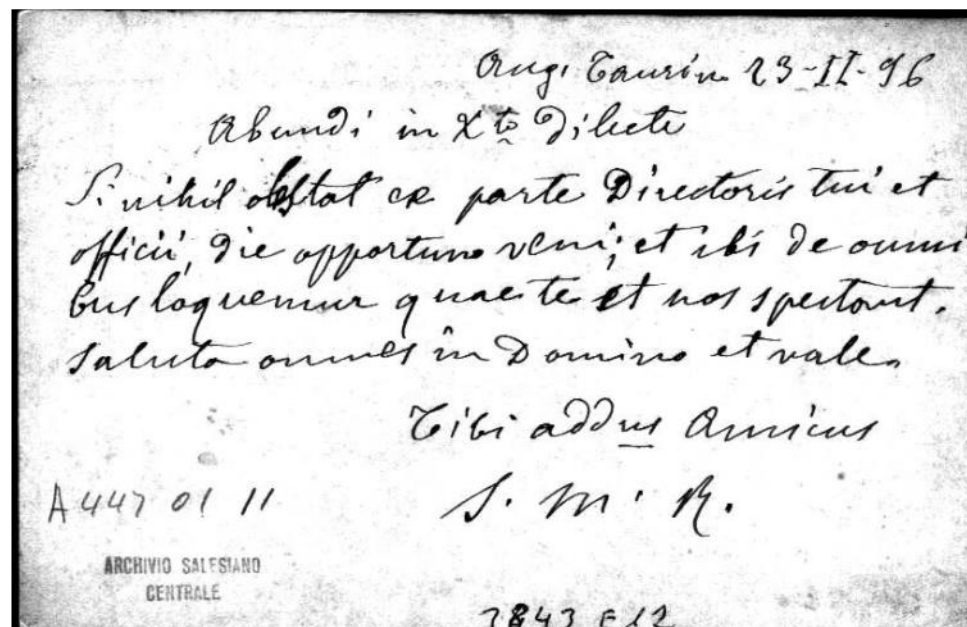 Aug. Taurin. 23-II-96
Abundi in Xto dilecte
Si nihil obstat ex parte Directoris tui et
officii, die opportuno veni; et ibi de omni
bus loquemur quae te et nos spectant.
Saluta omnes in Domino et vale.
Tibi addus Amicus
S. M. R.
A 447 01 11
ARCHIVIO SALESIANO
CENTRALE
3843 E 12